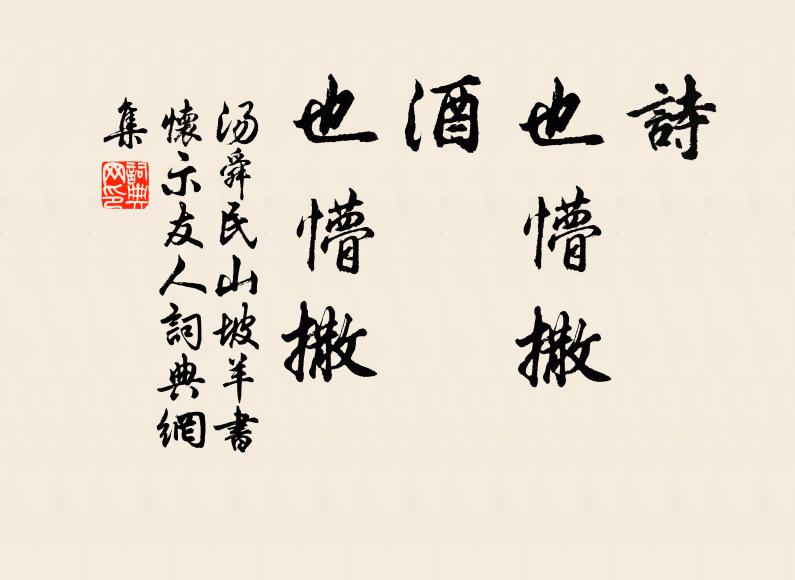 詩
也懵撒
酒
也懵撒
汤舜民山坡羊書
懷示友人詞典網
集
詞典
网印